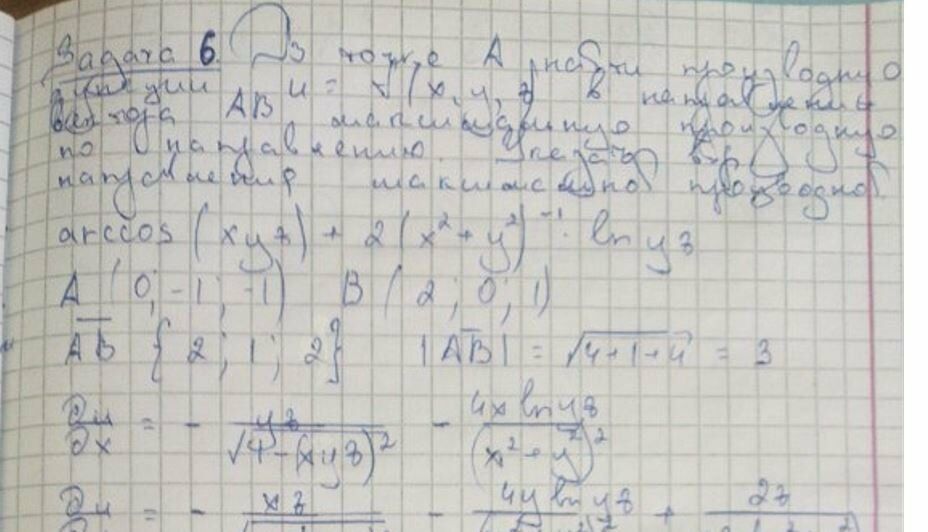 Задача 6. В точке A найти производную
функции u = f(x, y, z) в направлении
вектора AB, максимальную производную
по направлению. Указать
направления максимальной производной.
arccos (xyz) + 2(x² + y²)⁻¹ · ln yz
A (0; -1; -1) B (2; 0; 1)
AB {2; 1; 2} |AB| = √4+1+4 = 3
∂u/∂x = - yz/√1-(xyz)² - 4x ln yz/(x² + y²)²
∂u = - xz - 4y ln yz + 2z